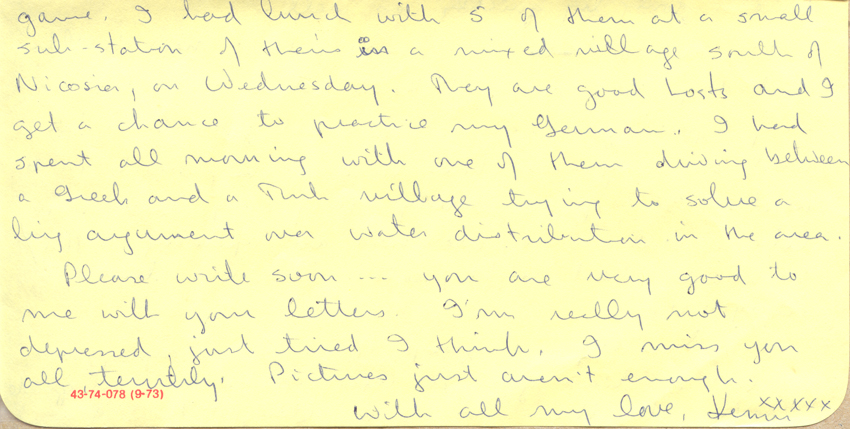 game. I had lunch with 5 of them at a small
sub-station of theirs in a mixed village south of
Nicosia, on Wednesday. They are good hosts and I
get a chance to practice my German. I had
spent all morning with one of them driving between
a Greek and a Turk village trying to solve a
big argument over water distribution in the area.
Please write soon --- you are very good to
me with your letters. I'm really not
depressed, just tired I think. I miss you
all terribly. Pictures just aren't enough.
43-74-078 (9-73)
With all my love, xxxxx